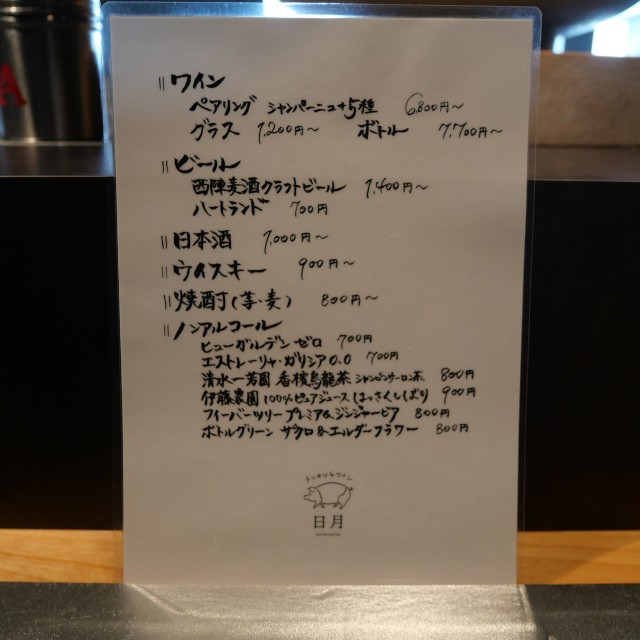 ワイン
ペアリング シャンパーニュ+5種 6,800円〜
グラス 1,200円〜 ボトル 7,700円〜
ビール
西陣麦酒クラフトビール 1,400円〜
ハートランド 700円
日本酒 1,000円〜
ウイスキー 900円〜
焼酎(芋・麦) 800円〜
ノンアルコール
ヒューガルデン ゼロ 700円
エストレーリャ・ガリシア0.0 700円
清水一芳園 香檳烏龍茶 シャンピンウーロン茶 800円
伊藤農園 100%ピュアジュース はっさくしぼり 900円
フィーバーツリー プレミア&ジンジャービア 800円
ボトルグリーン ザクロ&エルダーフラワー 800円
とんかつとワイン
日月